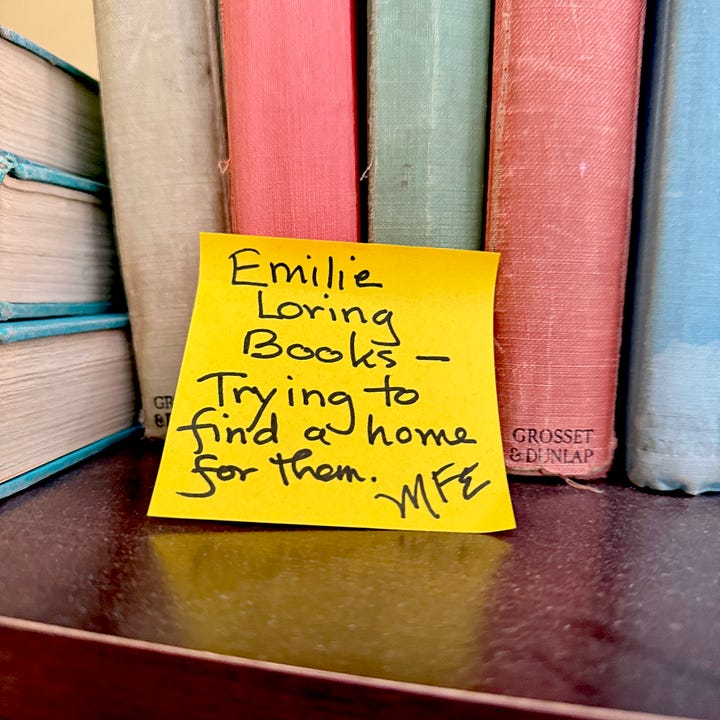 Emilie
Loring
Books —
Trying to
find a home
for them.
MFE
GROSSET
& DUNLAP